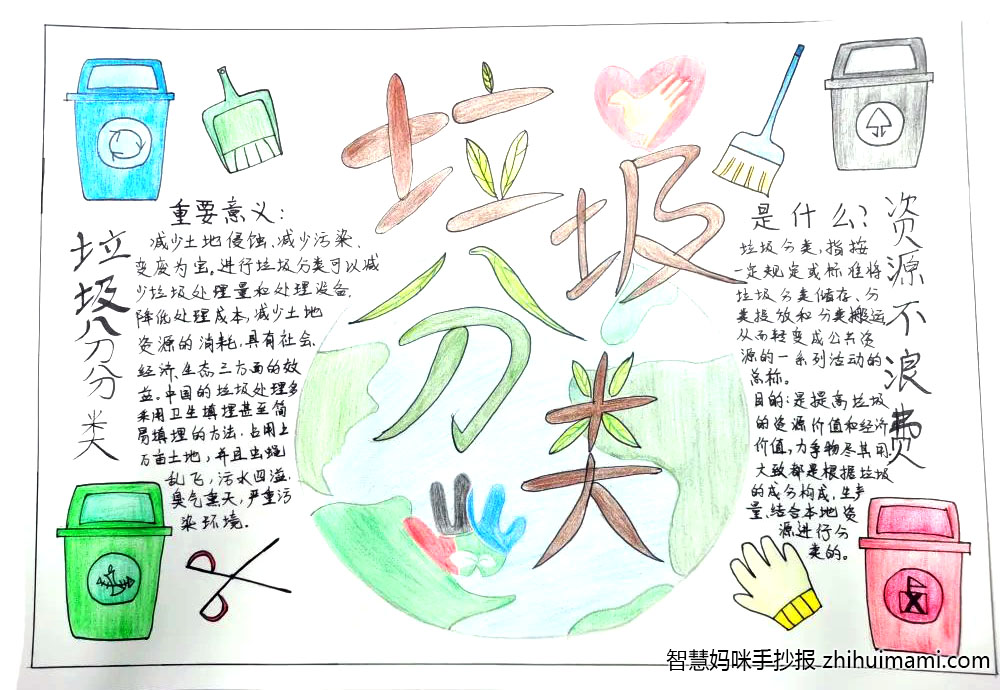 垃圾分类
垃圾分类
重要意义:
减少土地侵蚀,减少污染,
变废为宝。进行垃圾分类可以减
少垃圾处理量和处理设备,
降低处理成本,减少土地
资源的消耗,具有社会、
经济、生态三方面的效
益。中国的垃圾处理多
采用卫生填埋甚至简
易填埋的方法,占用上
万亩土地,并且虫蝇
乱飞,污水四溢,
臭气熏天,严重污
染环境.
是什么?
垃圾分类,指按
一定规定或标准将
垃圾分类储存、分
类投放和分类搬运,
从而转变成公共资
源的一系列活动的
总称。
目的:是提高垃圾
的资源价值和经济
价值,力争物尽其用。
大致都是根据垃圾
的成分构成,生产
量,结合本地资
源进行分
类的。
资源不浪费
智慧妈咪手抄报 zhihuimami.com